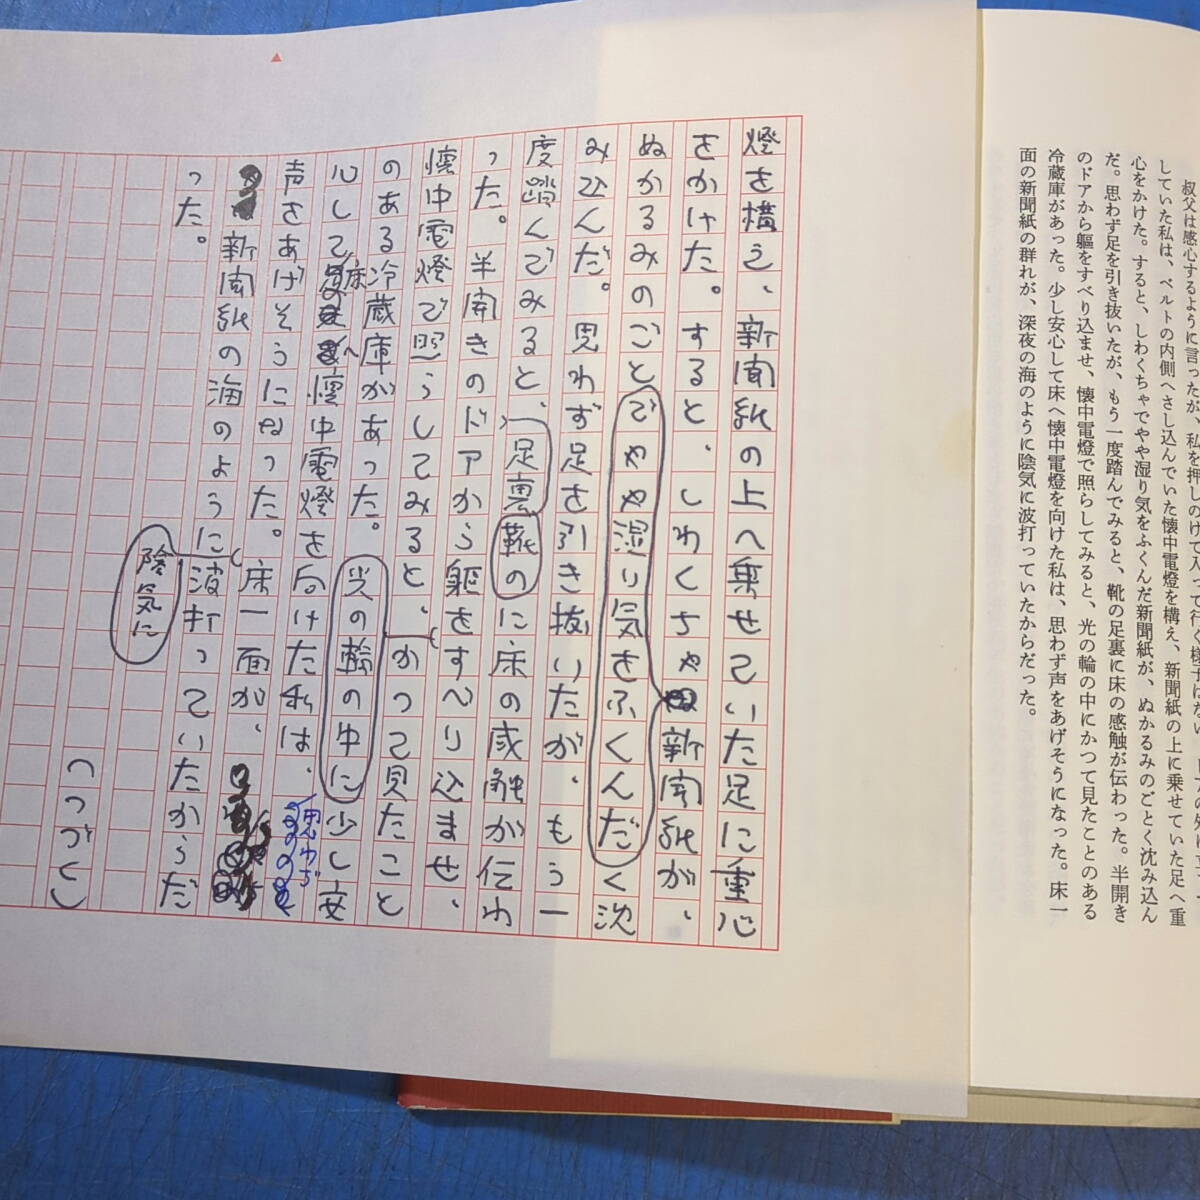 叔父は感心するように言ったが、私を押しのけて入って行く様子はない
していた私は、ベルトの内側へさし込んでいた懐中電燈を構え、新聞紙の上に乗せていた足へ重
心をかけた。すると、しわくちゃでやや湿り気をふくんだ新聞紙が、ぬかるみのごとく沈み込ん
だ。思わず足を引き抜いたが、もう一度踏んでみると、靴の足裏に床の感触が伝わった。半開き
のドアから軀をすべり込ませ、懐中電燈で照らしてみると、光の輪の中にかつて見たことのある
冷蔵庫があった。少し安心して床へ懐中電燈を向けた私は、思わず声をあげそうになった。床一
面の新聞紙の群れが、深夜の海のように陰気に波打っていたからだった。
燈を構え、新聞紙の上へ乗せていた足に重心
をかけた。すると、しわくちゃ新聞紙が、
でやや湿り気をふくんだ
ぬかるみのごとく沈
み込んだ。思わず足を引き抜いたが、もう一
度踏んでみると、足裏に床の感触が伝わ
靴の
った。半開きのドアから軀をすべり込ませ、
懐中電燈で照らしてみると、かつて見たこと
光の輪の中に
のある冷蔵庫があった。少し安
心して床へ懐中電燈を向けた私は、思わず
声をあげそうになった。床一面が、
新聞紙の海のように波打っていたからだ
陰気に
った。
(つづく)